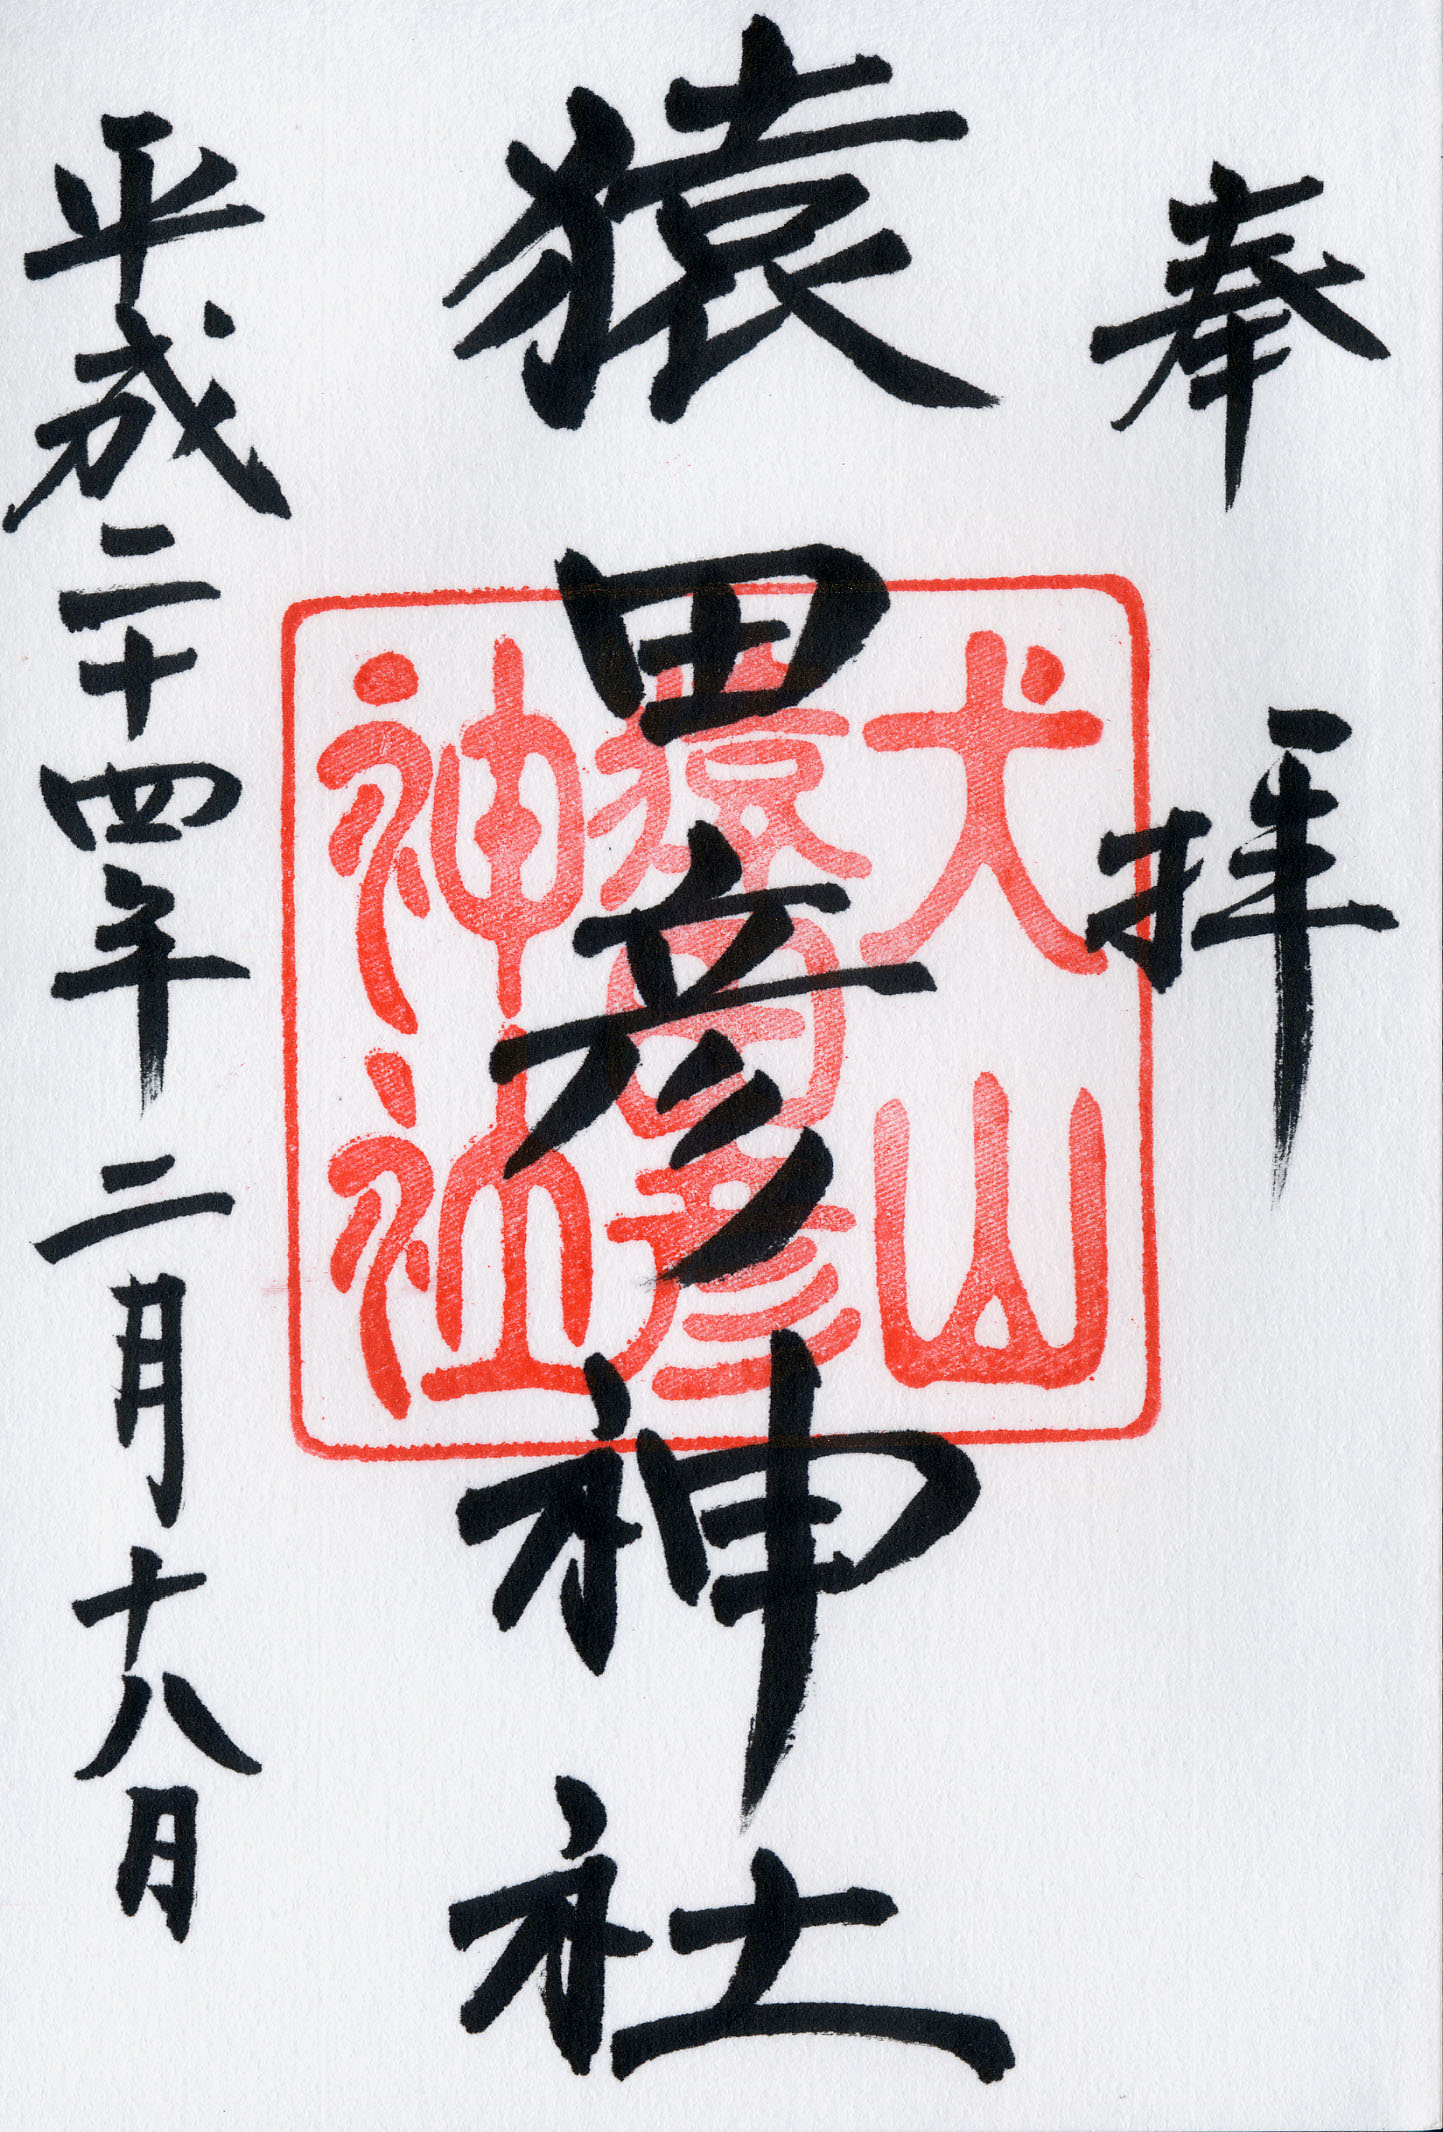 奉拝
猿田彦神社
平成二十四年二月十八日
犬山
猿田彦
神社